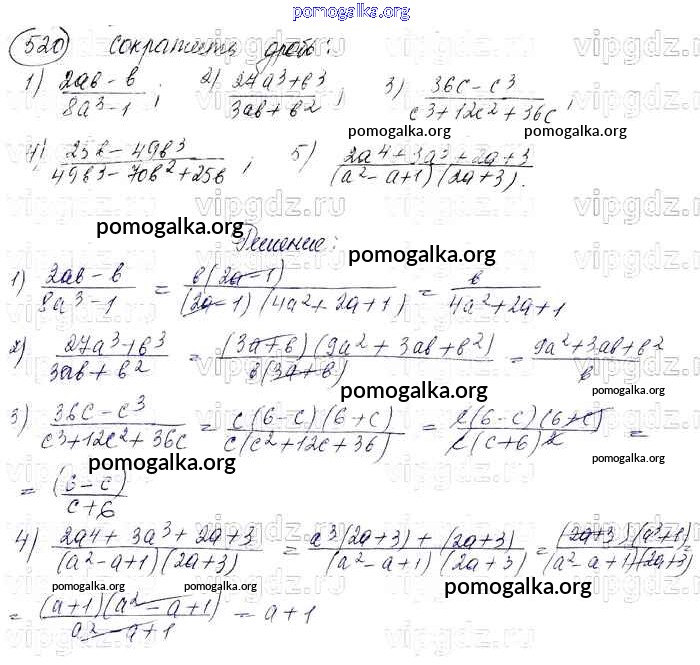 pomogalka.org
520 Сократить дробь:
1) (2ab - b)/(8a³ - 1); 2) (27a³ + b³)/(3ab + b²); 3) (36c - c³)/(c³ + 12c² + 36c);
pomogalka.org pomogalka.org
4) (25b - 49b³)/(49b³ - 70b² + 25b); 5) (2a⁴ + 3a³ + 2a + 3)/((a² - a + 1)(2a + 3)).
pomogalka.org pomogalka.org
Решение:
pomogalka.org
1) (2ab - b)/(8a³ - 1) = b(2a - 1)/((2a - 1)(4a² + 2a + 1)) = b/(4a² + 2a + 1)
2) (27a³ + b³)/(3ab + b²) = (3a + b)(9a² + 3ab + b²)/(b(3a + b)) = (9a² + 3ab + b²)/b
pomogalka.org pomogalka.org
3) (36c - c³)/(c³ + 12c² + 36c) = c(6 - c)(6 + c)/(c(c² + 12c + 36)) = c(6 - c)(6 + c)/(c(c + 6)²) =
pomogalka.org pomogalka.org
= (6 - c)/(c + 6)
4) (2a⁴ + 3a³ + 2a + 3)/((a² - a + 1)(2a + 3)) = (a³(2a + 3) + (2a + 3))/((a² - a + 1)(2a + 3)) = (2a + 3)(a³ + 1)/((a² - a + 1)(2a + 3))
pomogalka.org pomogalka.org pomogalka.org pomogalka.org
= (a + 1)(a² - a + 1)/(a² - a + 1) = a + 1
vipgdz.ru